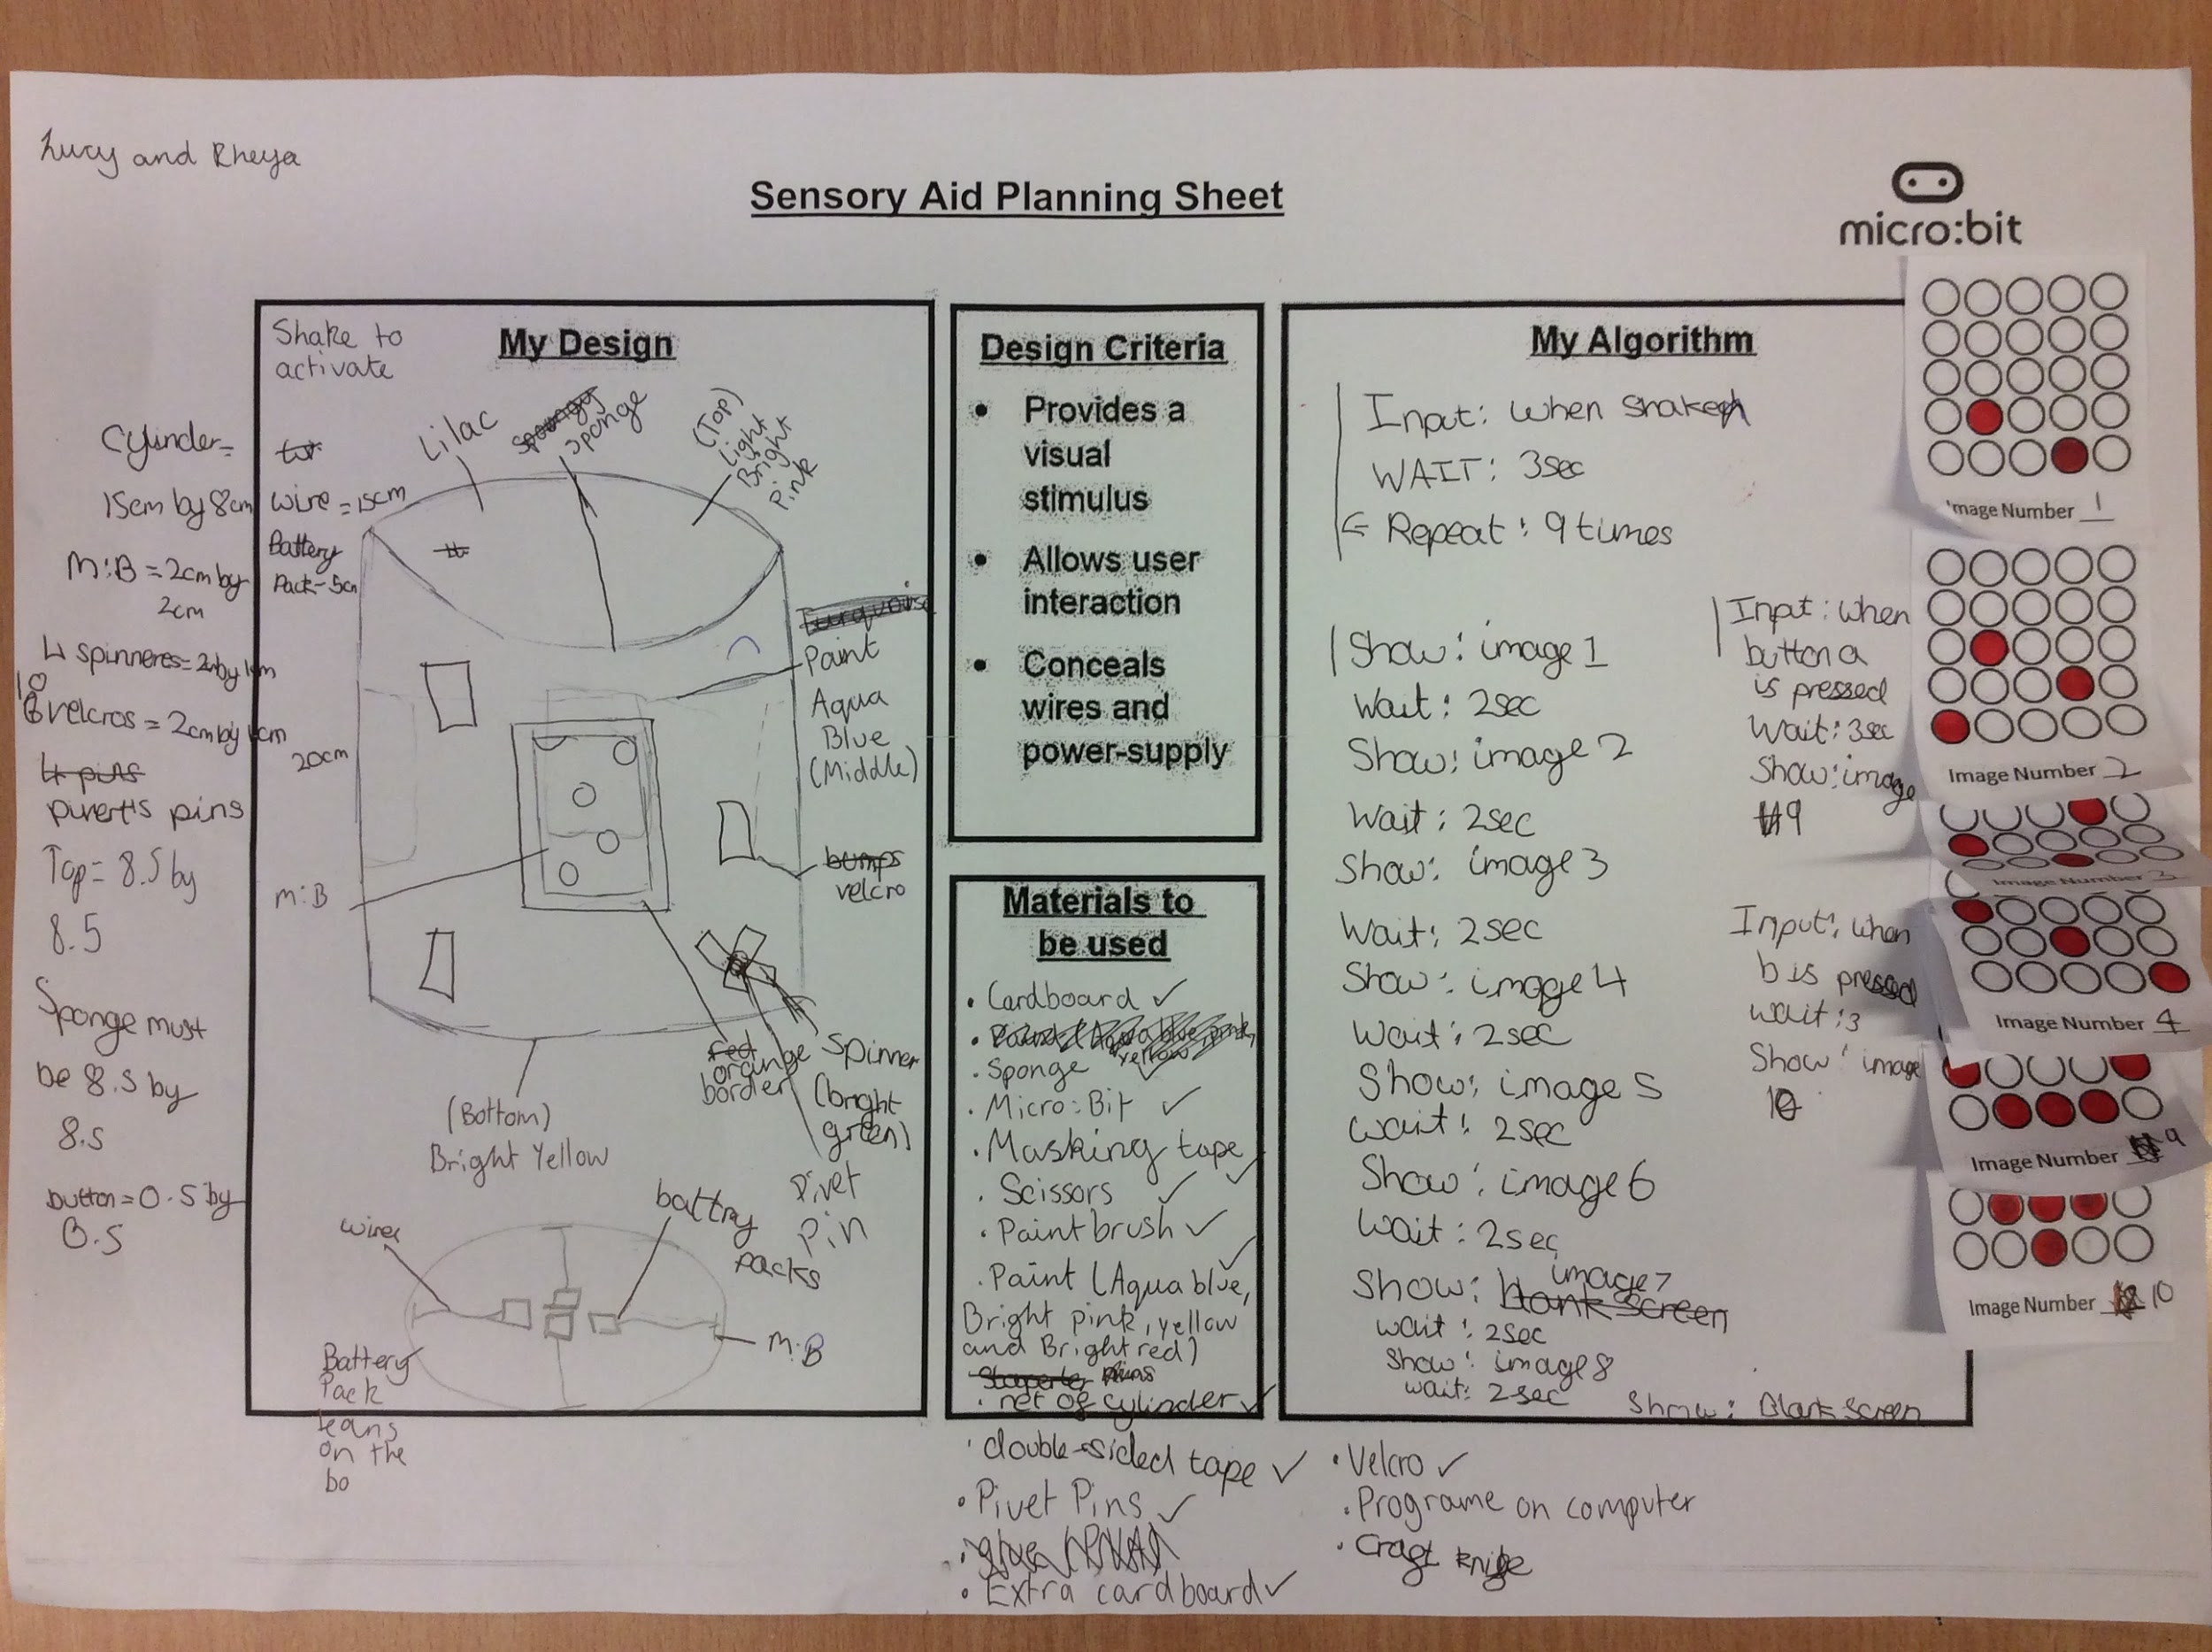 Lucy and Rheya
Sensory Aid Planning Sheet
micro:bit
Cylinder=
15cm by 8cm
M:B = 2cm by
2cm
4 spinneres= 2 by 1cm
10
velcros = 2cm by 1cm
4 pins
pivert's pins
Top= 8.5 by
8.5
Sponge must
be 8.5 by
8.5
button= 0.5 by
0.5
My Design
Shake to
activate
wire = 15cm
Battery
Pack-5cm
Lilac
Spongy
Sponge
(Top)
Light
Bright
Pink
Turquoise
Paint
Aqua
Blue
(Middle)
20cm
M:B
bumps
velcro
red
orange
border
Spinner
(bright
green)
Pivet
Pin
(Bottom)
Bright Yellow
wires
battry
packs
M:B
Battery
Pack
leans
on the
bo
Design Criteria
• Provides a
visual
stimulus
• Allows user
interaction
• Conceals
wires and
power-supply
Materials to
be used
• Cardboard ✓
yellow
• Sponge ✓
• Micro:Bit ✓
• Masking tape ✓
• Scissors ✓
• Paintbrush ✓
• Paint (Aqua blue,
Bright pink, yellow
and Bright red)
pins
• net of cylinder ✓
• double-sided tape ✓
• Pivet Pins ✓
• glue (PVA)
• Extra cardboard ✓
• Velcro ✓
• Programe on computer
• Craft knife
My Algorithm
Input: when shaken
WAIT: 3sec
Repeat: 9 times
Show: image 1
Wait: 2sec
Show: image 2
Wait: 2sec
Show: image 3
Wait: 2sec
Show: image 4
Wait: 2sec
Show: image 5
wait: 2sec
Show: image 6
Wait: 2sec
Show: blank screen image 7
wait: 2sec
Show: image 8
wait: 2sec
Show: Blank screen
Input: when
button a
is pressed
Wait: 3sec
Show: image
9
Input: when
b is pressed
wait: 3
Show: image
10
Image Number 1
Image Number 2
Image Number 3
Image Number 4
Image Number 9
Image Number 10